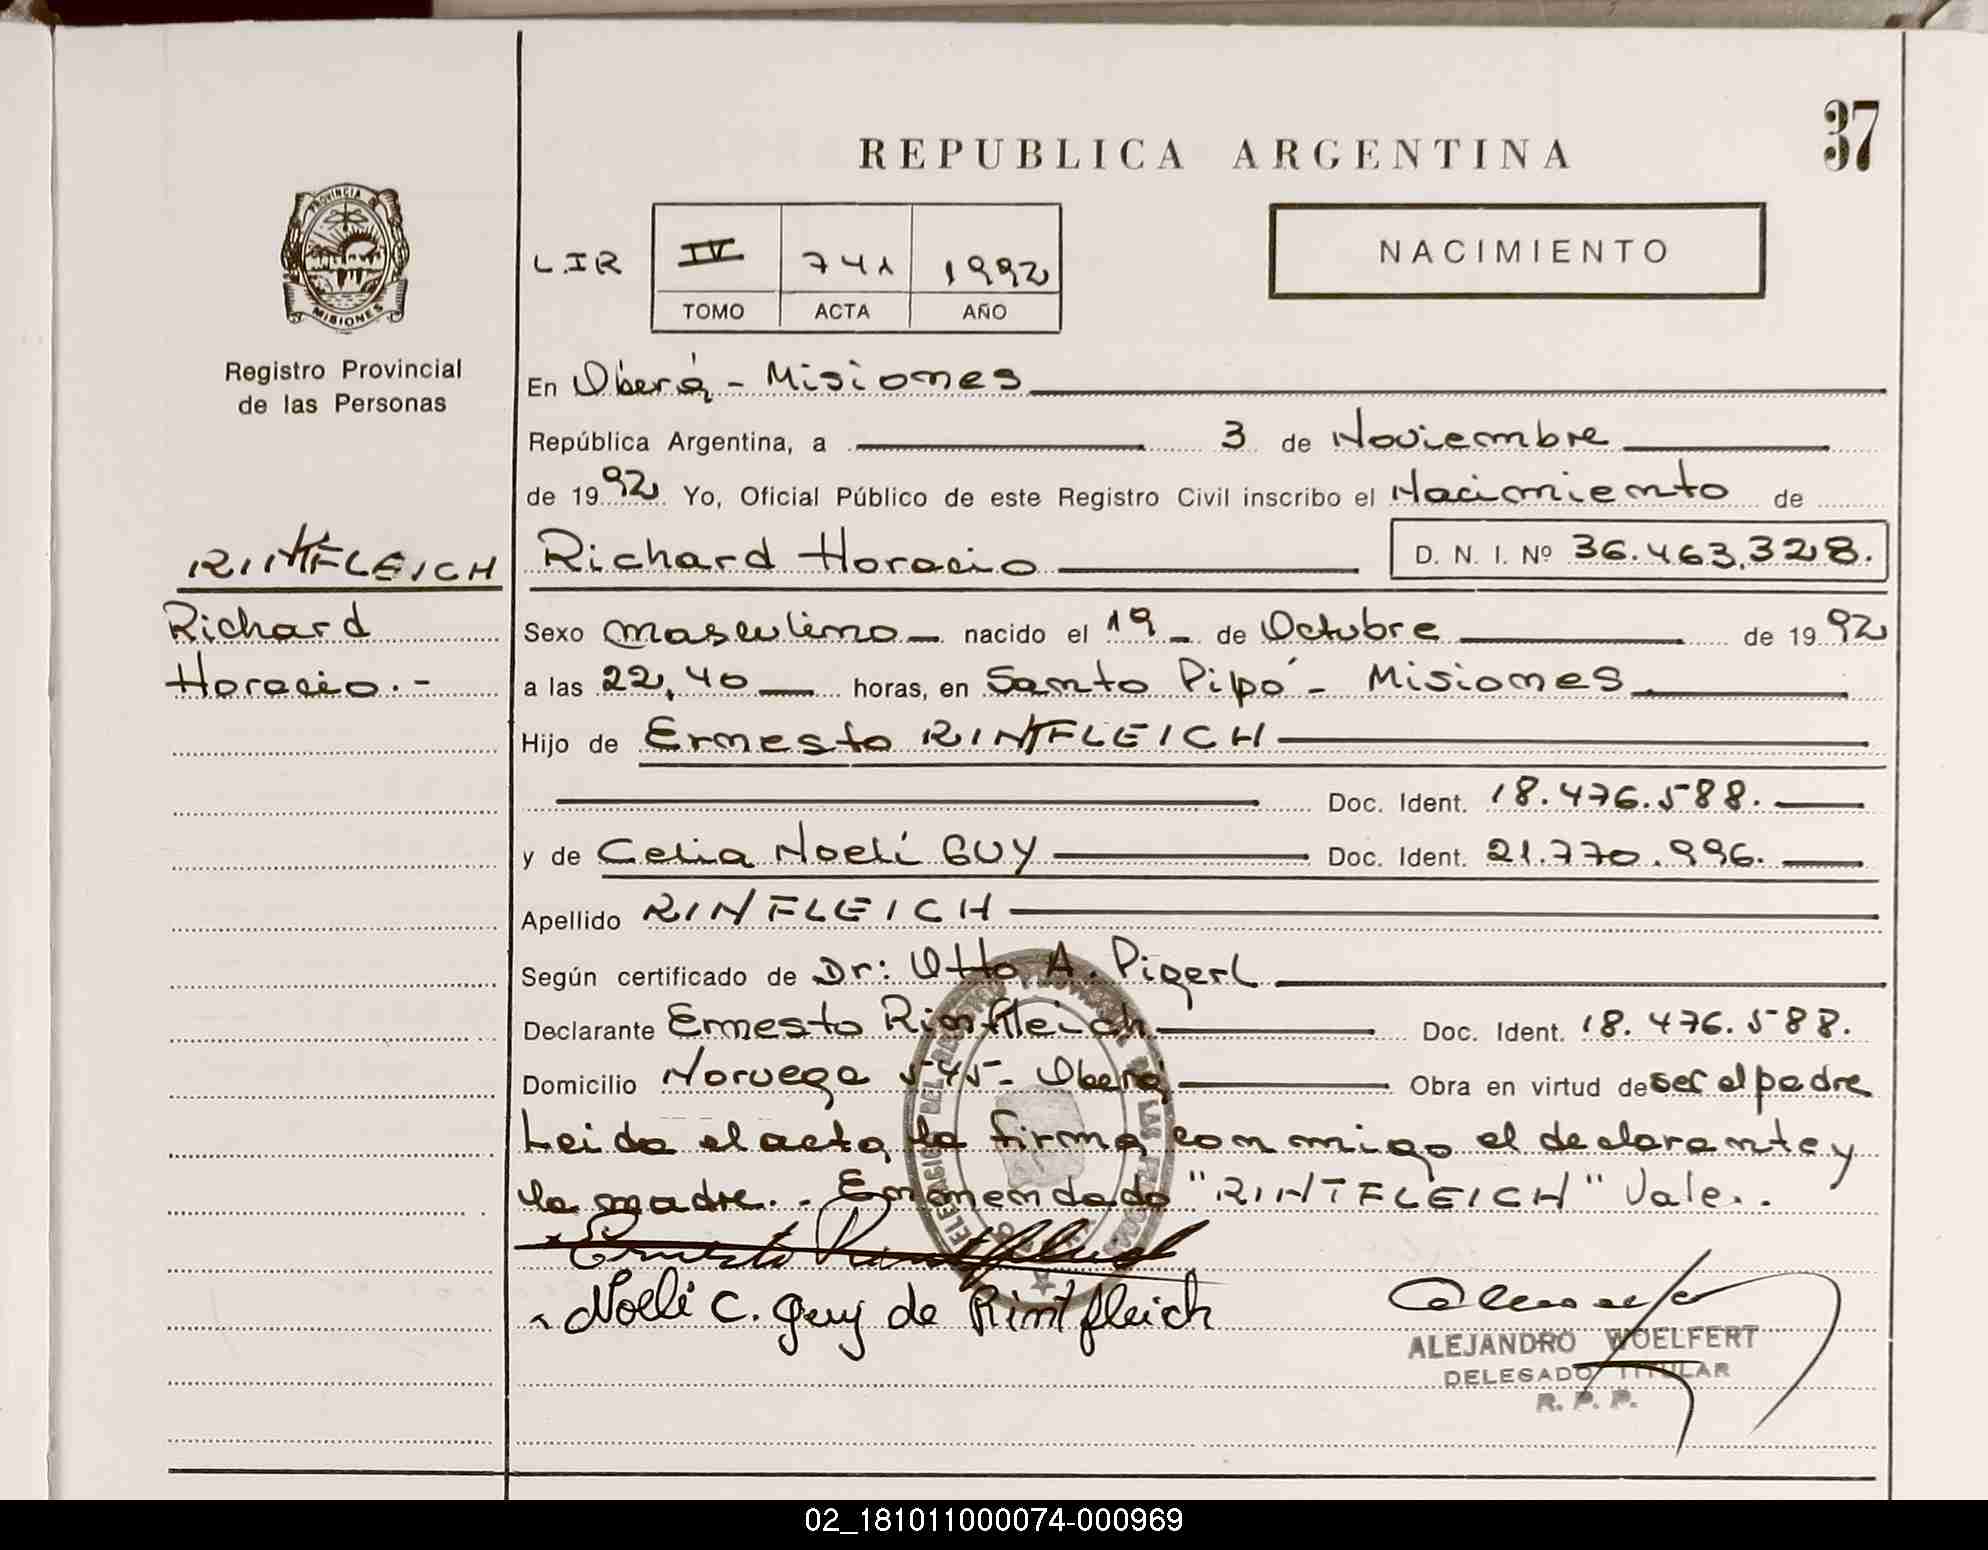 37
REPUBLICA ARGENTINA
PROVINCIA DE
MISIONES
Registro Provincial
de las Personas
L.I R
IV 741 1992
TOMO ACTA AÑO
NACIMIENTO
En Oberá - Misiones
República Argentina, a 3 de Noviembre
de 1992 Yo, Oficial Público de este Registro Civil inscribo el Nacimiento de
RINTFLEICH
Richard
Horacio.-
Richard Horacio D. N. I. Nº 36.463.328.
Sexo masculino nacido el 19 de Octubre de 1992
a las 22,40 horas, en Santo Pipó - Misiones
Hijo de Ernesto RINTFLEICH
Doc. Ident. 18.476.588.
y de Celia Noelí GUY Doc. Ident. 21.770.996.
Apellido RINTFLEICH
Según certificado de Dr: Otto A. Pigerl
Declarante Ernesto Rintfleich Doc. Ident. 18.476.588.
Domicilio Noruega 545- Oberá Obra en virtud de ser el padre
Leida el acta, la firma conmigo el declarante y
la madre.- Enmendado "RINTFLEICH" Vale..
Ernesto Rintfleich
Noelí C. Guy de Rintfleich
ALEJANDRO WOELFERT
DELEGADO TITULAR
R. P. P.
02_181011000074-000969